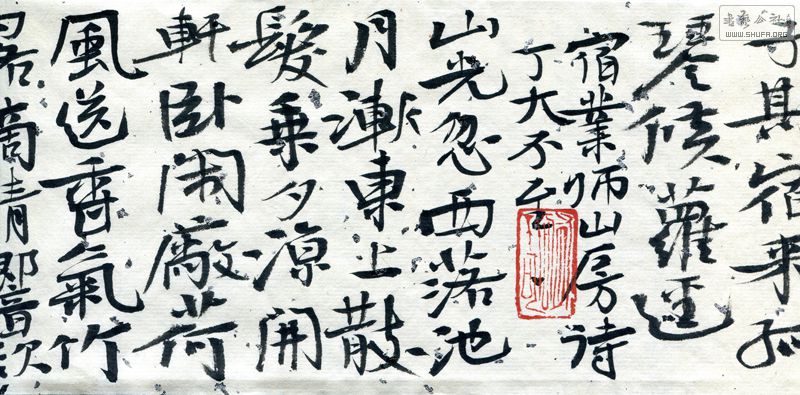 書法公社
WWW.SHUFA.ORG
子期宿來孤
琴候蘿逕
宿業師山房詩
丁大不至
山光忽西落池
月漸東上散
髮乘夕涼開
軒卧閑廠荷
風送香氣竹
露滴清響欲